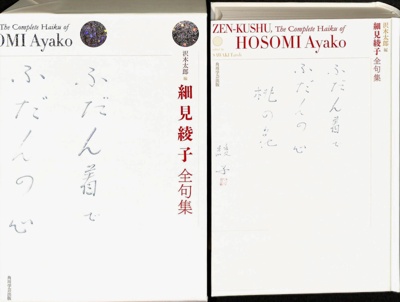 The Complete Haiku of
OMI Ayako
沢木太郎 編
細見綾子 全句集
ふだん着で
ふだんの心
角川学芸出版
ZEN-KUSHU, The Complete Haiku of
HOSOMI Ayako
沢木太郎 編
細見綾子 全句集
ふだん着で
ふだんの心
桃の花
綾子
角川学芸出版